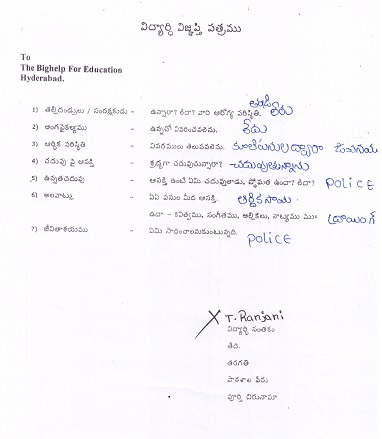 విద్యార్ధి విజ్ఞప్తి పత్రము
To
The Bighelp For Education
Hyderabad.
1) తల్లిదండ్రులు / సంరక్షకుడు - ఉన్నారా? లేదా? వారి ఆరోగ్య పరిస్థితి. తండ్రి లేరు
2) అంగవైకల్యము - ఉన్నచో వివరించవలెను. లేదు
3) ఆర్థిక పరిస్థితి - వివరములు తెలుపవలెను.
4) చదువు పై ఆసక్తి - శ్రద్ధగా చదువుచున్నారా? చదువుతున్నాను
5) ఉన్నతచదువు - ఆసక్తి ఉంటే ఏమి చదువుతాడు, స్తోమత ఉందా? లేదా? POLICE
6) అలవాట్లు - ఏఏ పనుల మీద ఆసక్తి.
ఉదా - కవిత్వము, సంగీతము, అల్లికలు, నాట్యము మొ॥ డ్రాయింగ్
7) జీవితాశయము - ఏమి సాధించాలనుకుంటున్నది. POLICE
T. Ranjani
విద్యార్థి సంతకం
తేది.
తరగతి
పాఠశాల పేరు
పూర్తి చిరునామా